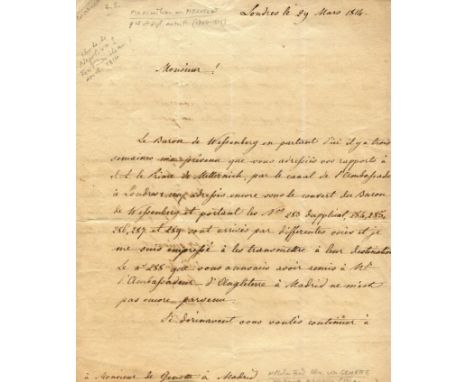 Londres le 29 Mars 1814.
Monsieur!
Le Baron de Wessenberg en partant d'ici il y a trois
semaines me prévenu que vous adressiés vos rapports à
S. A. le Prince de Metternich, par le canal de l'Ambassade
à Londres; cinq adressés encore sous le couvert du Baron
de Wessenberg et portant les Nros 283 duplicat, 284, 285,
286, 287 et 289 sont arrivés par differentes voies et je
me suis empressé à les transmettre à leur destination
Le No 288 que vous annoncés avoir remis à Mr
l'Ambassadeur d'Angleterre à Madrid ne m'est
pas encore parvenu.
Si dorénavent vous voulés continuer à
à Monsieur de Genotte à Madrid